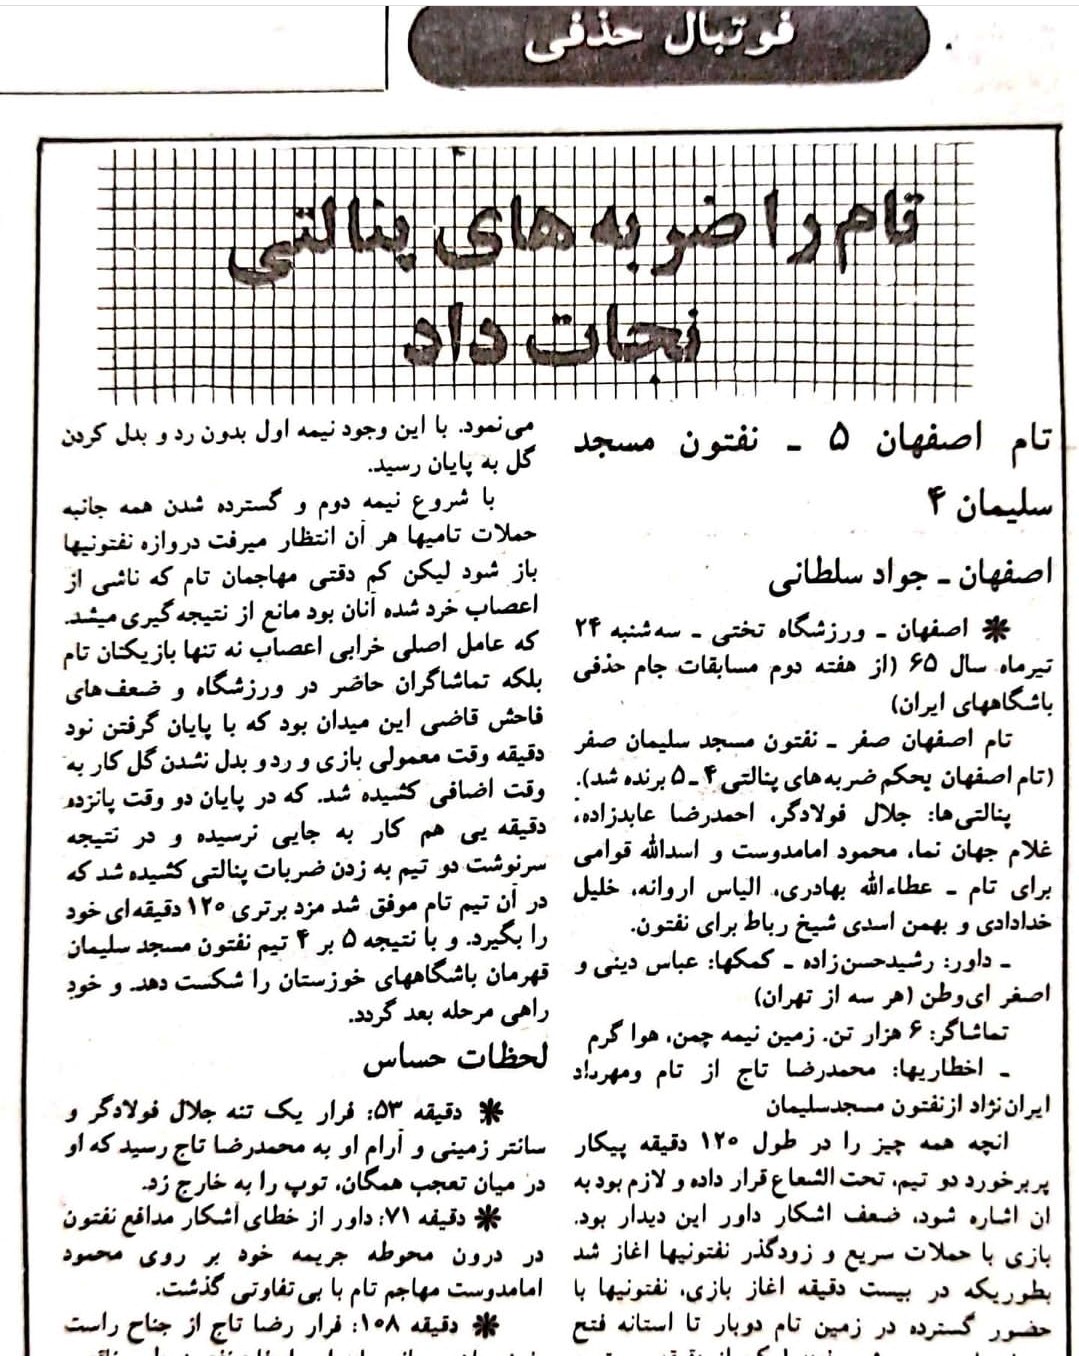 فوتبال حذفی
تام را ضربه های پنالتی
نجات داد
تام اصفهان ۵ ـ نفتون مسجد
سلیمان ۴
اصفهان ـ جواد سلطانی
✱ اصفهان ـ ورزشگاه تختی ـ سه‌شنبه ۲۴
تیرماه سال ۶۵ (از هفته دوم مسابقات جام حذفی
باشگاههای ایران)
تام اصفهان صفر ـ نفتون مسجد سلیمان صفر
(تام اصفهان بحکم ضربه‌های پنالتی ۴ـ۵ برنده شد).
پنالتی‌ها: جلال فولادگر، احمدرضا عابدزاده،
غلام جهان نما، محمود امامدوست و اسدالله قوامی
برای تام ـ عطاءالله بهادری، الیاس اروانه، خلیل
خدادادی و بهمن اسدی شیخ رباط برای نفتون.
ـ داور: رشیدحسن‌زاده ـ کمکها: عباس دینی و
اصغر ای‌وطن (هر سه از تهران)
تماشاگر: ۶ هزار تن. زمین نیمه چمن، هوا گرم
ـ اخطاریها: محمدرضا تاج از تام ومهرداد
ایران‌نژاد ازنفتون مسجدسلیمان
انچه همه چیز را در طول ۱۲۰ دقیقه پیکار
پربرخورد دو تیم، تحت الشعاع قرار داده و لازم بود به
ان اشاره شود، ضعف اشکار داور این دیدار بود.
بازی با حملات سریع و زودگذر نفتونیها اغاز شد
بطوریکه در بیست دقیقه اغاز بازی، نفتونیها با
حضور گسترده در زمین تام دوبار تا استانه فتح
می‌نمود. با این وجود نیمه اول بدون رد و بدل کردن
گل به پایان رسید.
با شروع نیمه دوم و گسترده شدن همه جانبه
حملات تامیها هر آن انتظار میرفت دروازه نفتونیها
باز شود لیکن کم دقتی مهاجمان تام که ناشی از
اعصاب خرد شده آنان بود مانع از نتیجه‌گیری میشد.
که عامل اصلی خرابی اعصاب نه تنها بازیکنان تام
بلکه تماشاگران حاضر در ورزشگاه و ضعف‌های
فاحش قاضی این میدان بود که با پایان گرفتن نود
دقیقه وقت معمولی بازی و رد و بدل نشدن گل کار به
وقت اضافی کشیده شد. که در پایان دو وقت پانزده
دقیقه یی هم کار به جایی نرسیده و در نتیجه
سرنوشت دو تیم به زدن ضربات پنالتی کشیده شد که
در آن تیم تام موفق شد مزد برتری ۱۲۰ دقیقه‌ای خود
را بگیرد. و با نتیجه ۵ بر ۴ تیم نفتون مسجد سلیمان
قهرمان باشگاههای خوزستان را شکست دهد. و خود
راهی مرحله بعد گردد.
لحظات حساس
✱ دقیقه ۵۳: فرار یک تنه جلال فولادگر و
سانتر زمینی و آرام او به محمدرضا تاج رسید که او
در میان تعجب همگان، توپ را به خارج زد.
✱ دقیقه ۷۱: داور از خطای آشکار مدافع نفتون
در درون محوطه جریمه خود بر روی محمود
امامدوست مهاجم تام با بی‌تفاوتی گذشت.
✱ دقیقه ۱۰۸: فرار رضا تاج از جناح راست